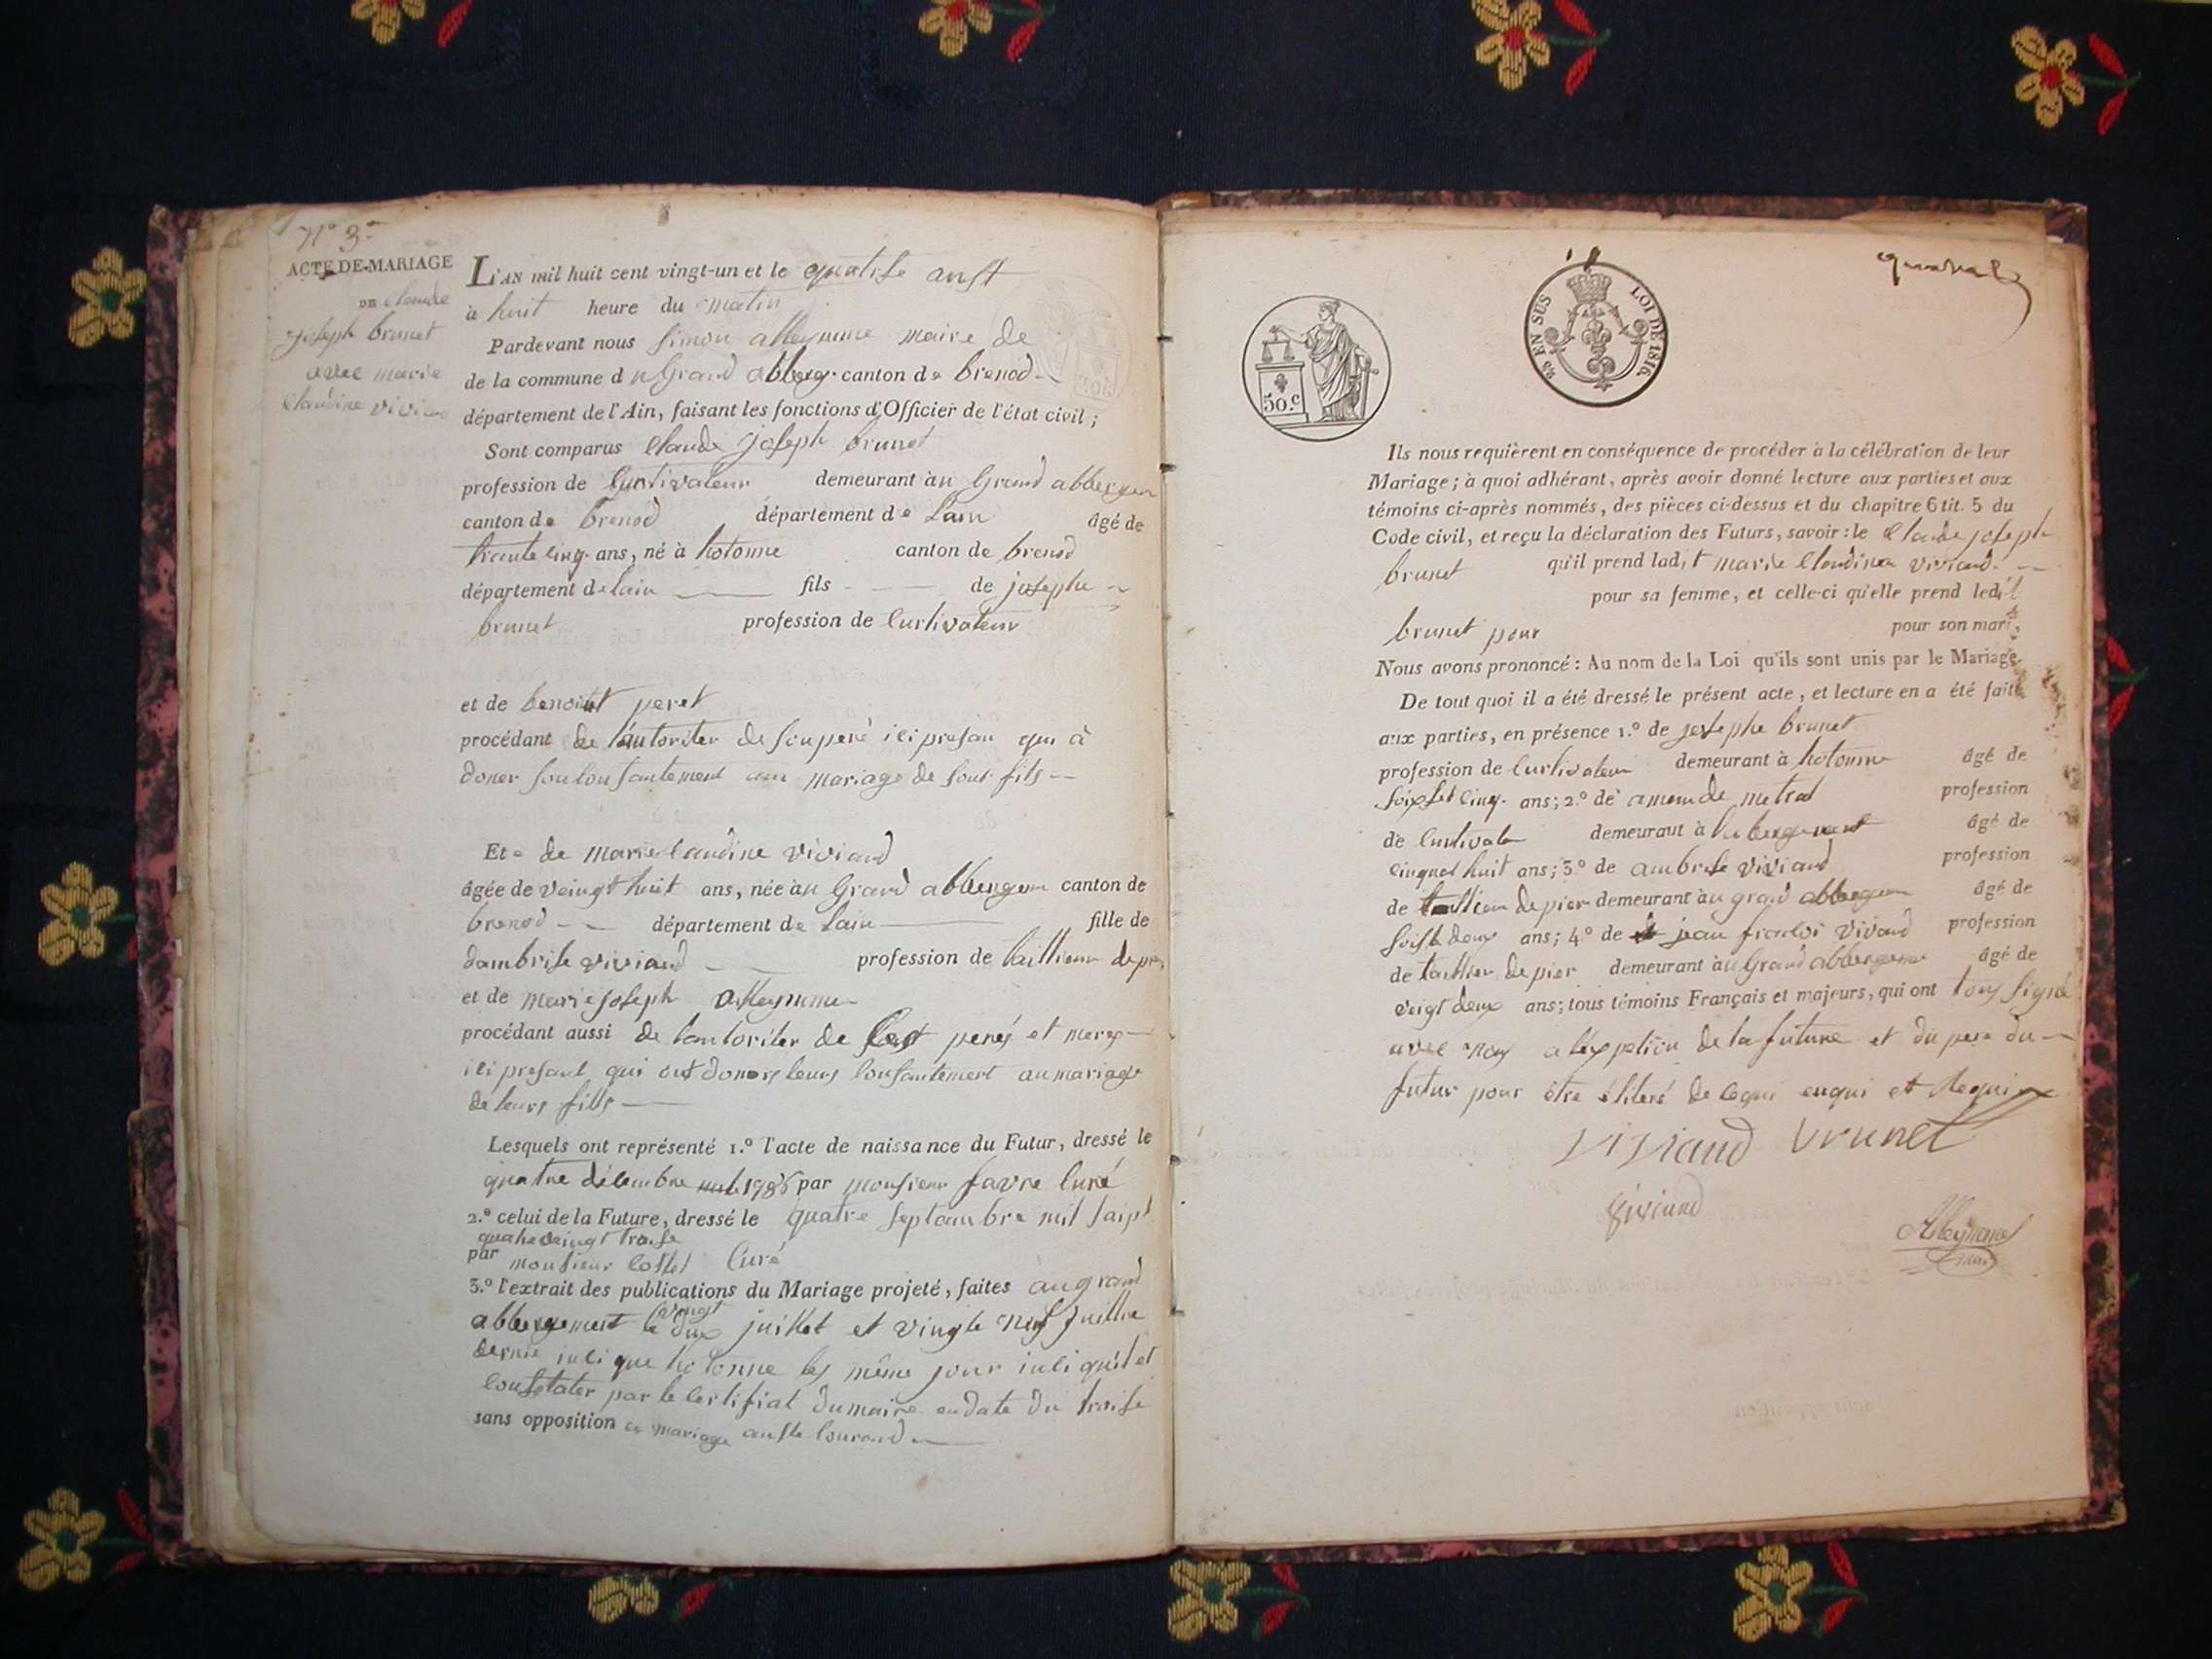 N° 3
ACTE DE MARIAGE
DE Claude
joseph brunet
avec marie
Claudine viviand
L'AN mil huit cent vingt-un et le quatrse aust
à huit heure du matin
Pardevant nous simon alleymme maire de
de la commune du Grand abberg. canton de brenod
département de l'Ain, faisant les fonctions d'Officier de l'état civil;
Sont comparus Claude joseph brunet
profession de Curtivateur demeurant àu Grand abbergem
canton de brenod département de Lain âgé de
trante cinq ans, né à hotonne canton de brenod
département de lain fils de josephe
brunet profession de Curtivateur
et de benoitt peret
procédant de l'autoriter de son peré ici presan qui à
doner son consantement au mariage de sont fils
Et de marie Claudine viviand
âgée de veingt huit ans, née àu Grand abbergem canton de
brenod département de Lain fille de
dambrise viviand profession de taillieur depier
et de marie joseph alleymme
procédant aussi de lautoriter de ses perés et meres
ici presant qui ont doners leurs consantement au mariage
de leurs fills
Lesquels ont représenté 1.° l'acte de naissance du Futur, dressé le
quatre décembre par monsieur favre Curé
2.° celui de la Future, dressé le quatre septambre mil saipt
quatreveingt traise
par monsieur Curé
3.° l'extrait des publications du Mariage projeté, faites au grand
abbergement le vingt dux juillet et vingte neuf juillie
dernié insi que hotonne les même jour insi qu'il et
constater par le certifiat du maire en date du traise
sans opposition ce mariage auste courand
quaral
50.c
EN SUS LOI DE 1816.
Ils nous requièrent en conséquence de procéder à la célébration de leur
Mariage; à quoi adhérant, après avoir donné lecture aux parties et aux
témoins ci-après nommés, des pièces ci-dessus et du chapitre 6 tit. 5 du
Code civil, et reçu la déclaration des Futurs, savoir: le Claude joseph
brunet qu'il prend ladit marie Claudinea viviand
pour sa femme, et celle-ci qu'elle prend ledit
brunet pour pour son mari,
Nous avons prononcé: Au nom de la Loi qu'ils sont unis par le Mariage.
De tout quoi il a été dressé le présent acte, et lecture en a été faite
aux parties, en présence 1.° de josephe brunet
profession de Curtivateur demeurant à hotonne âgé de
soix et cinq. ans; 2.° de amende metral profession
de Curtivate demeurant à labergement âgé de
cinquet huit ans; 3.° de ambrise viviand profession
de taillieur de pier demeurant àu grand abbergem âgé de
soiste deux ans; 4.° de jean francoi viviand profession
de taillier de pier demeurant àu Grand abbergeme âgé de
veigt deux ans; tous témoins Français et majeurs, qui ont tous signé
avec nous a lexpetion de la future et du pere du
futur pour être de cequi enqui et Requi
viviand brunet
viviand
Alleymme
maire